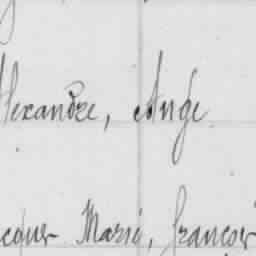 lexandre, Ange
cques Marie, françois